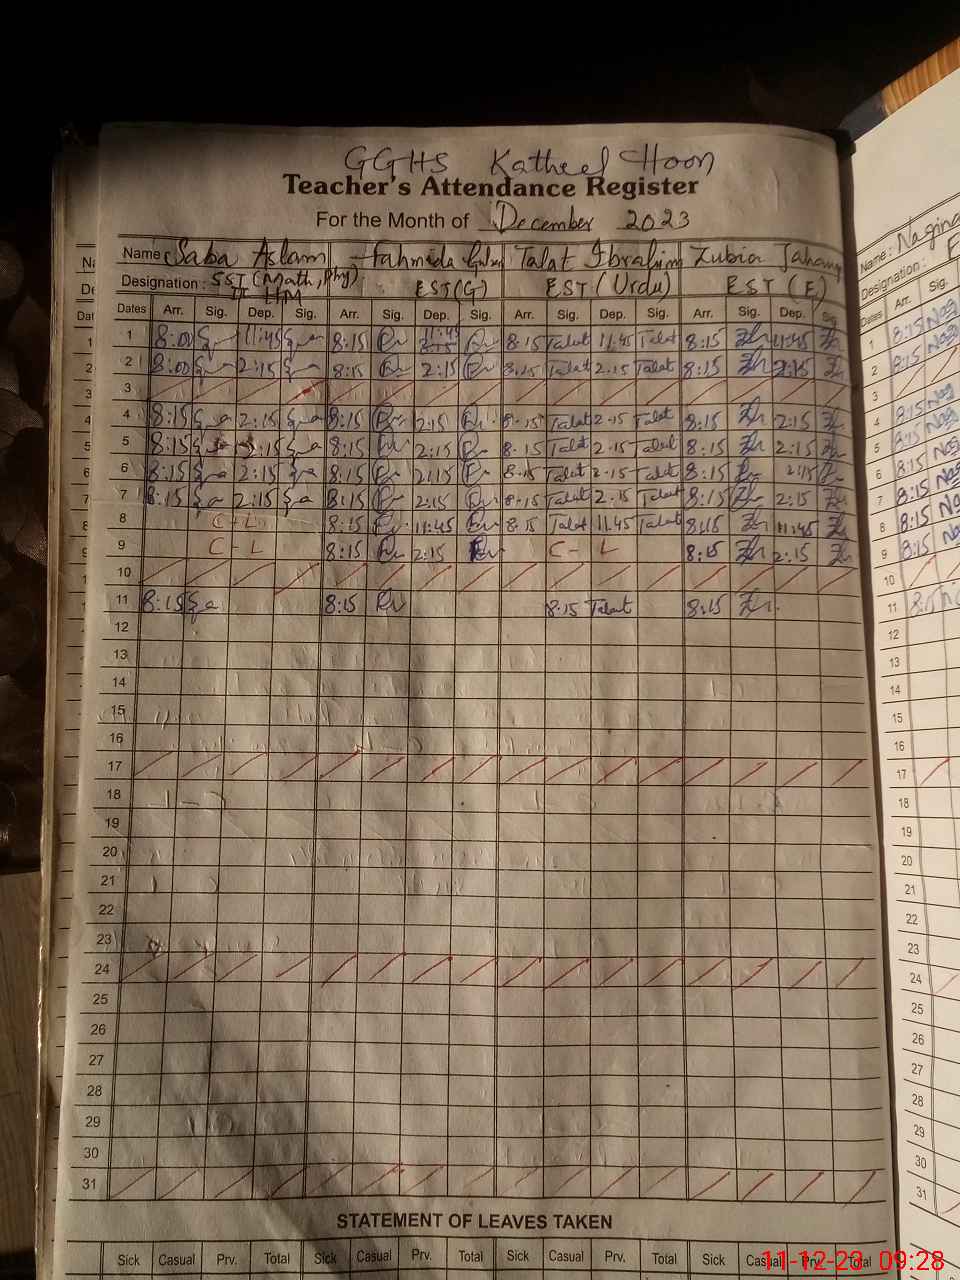 GGHS Katheel Hoon
Teacher's Attendance Register
For the Month of December 2023
Name Saba Aslam Fahmida Talat Ibrahim Zubia Jahang
Designation : SST (Math, Phy) EST (G) EST (Urdu) EST (E)
II HM
Dates Arr. Sig. Dep. Sig. Arr. Sig. Dep. Sig. Arr. Sig. Dep. Sig. Arr. Sig. Dep. Sig.
1 8:00 11:45 8:15 11:45 8:15 Talat 11:45 Talat 8:15 11:45
2 8:00 2:15 8:15 2:15 8:15 Talat 2:15 Talat 8:15 2:15
3
4 8:15 2:15 8:15 2:15 8:15 Talat 2:15 Talat 8:15 2:15
5 8:15 2:15 8:15 2:15 8:15 Talat 2:15 Talat 8:15 2:15
6 8:15 2:15 8:15 2:15 8:15 Talat 2:15 Talat 8:15 2:15
7 8:15 2:15 8:15 2:15 8:15 Talat 2:15 Talat 8:15 2:15
8 C-L 8:15 11:45 8:15 Talat 11:45 Talat 8:15 11:45
9 C-L 8:15 2:15 C-L 8:15 2:15
10
11 8:15 8:15 8:15 Talat 8:15
12
13
14
15
16
17
18
19
20
21
22
23
24
25
26
27
28
29
30
31
STATEMENT OF LEAVES TAKEN
Sick Casual Prv. Total Sick Casual Prv. Total Sick Casual Prv. Total Sick Casual Prv. Total
Name : Nagina
Designation :
Dates Arr. Sig.
1 8:15 Nag
2 8:15 Nag
3
4 8:15 Nag
5 8:15 Nag
6 8:15 Nag
7 8:15 Nag
8 8:15 Nag
9 8:15 Nag
10
11 8:15
12
13
14
15
16
17
18
19
20
21
22
23
24
25
26
27
28
29
30
31
11-12-23 09:28